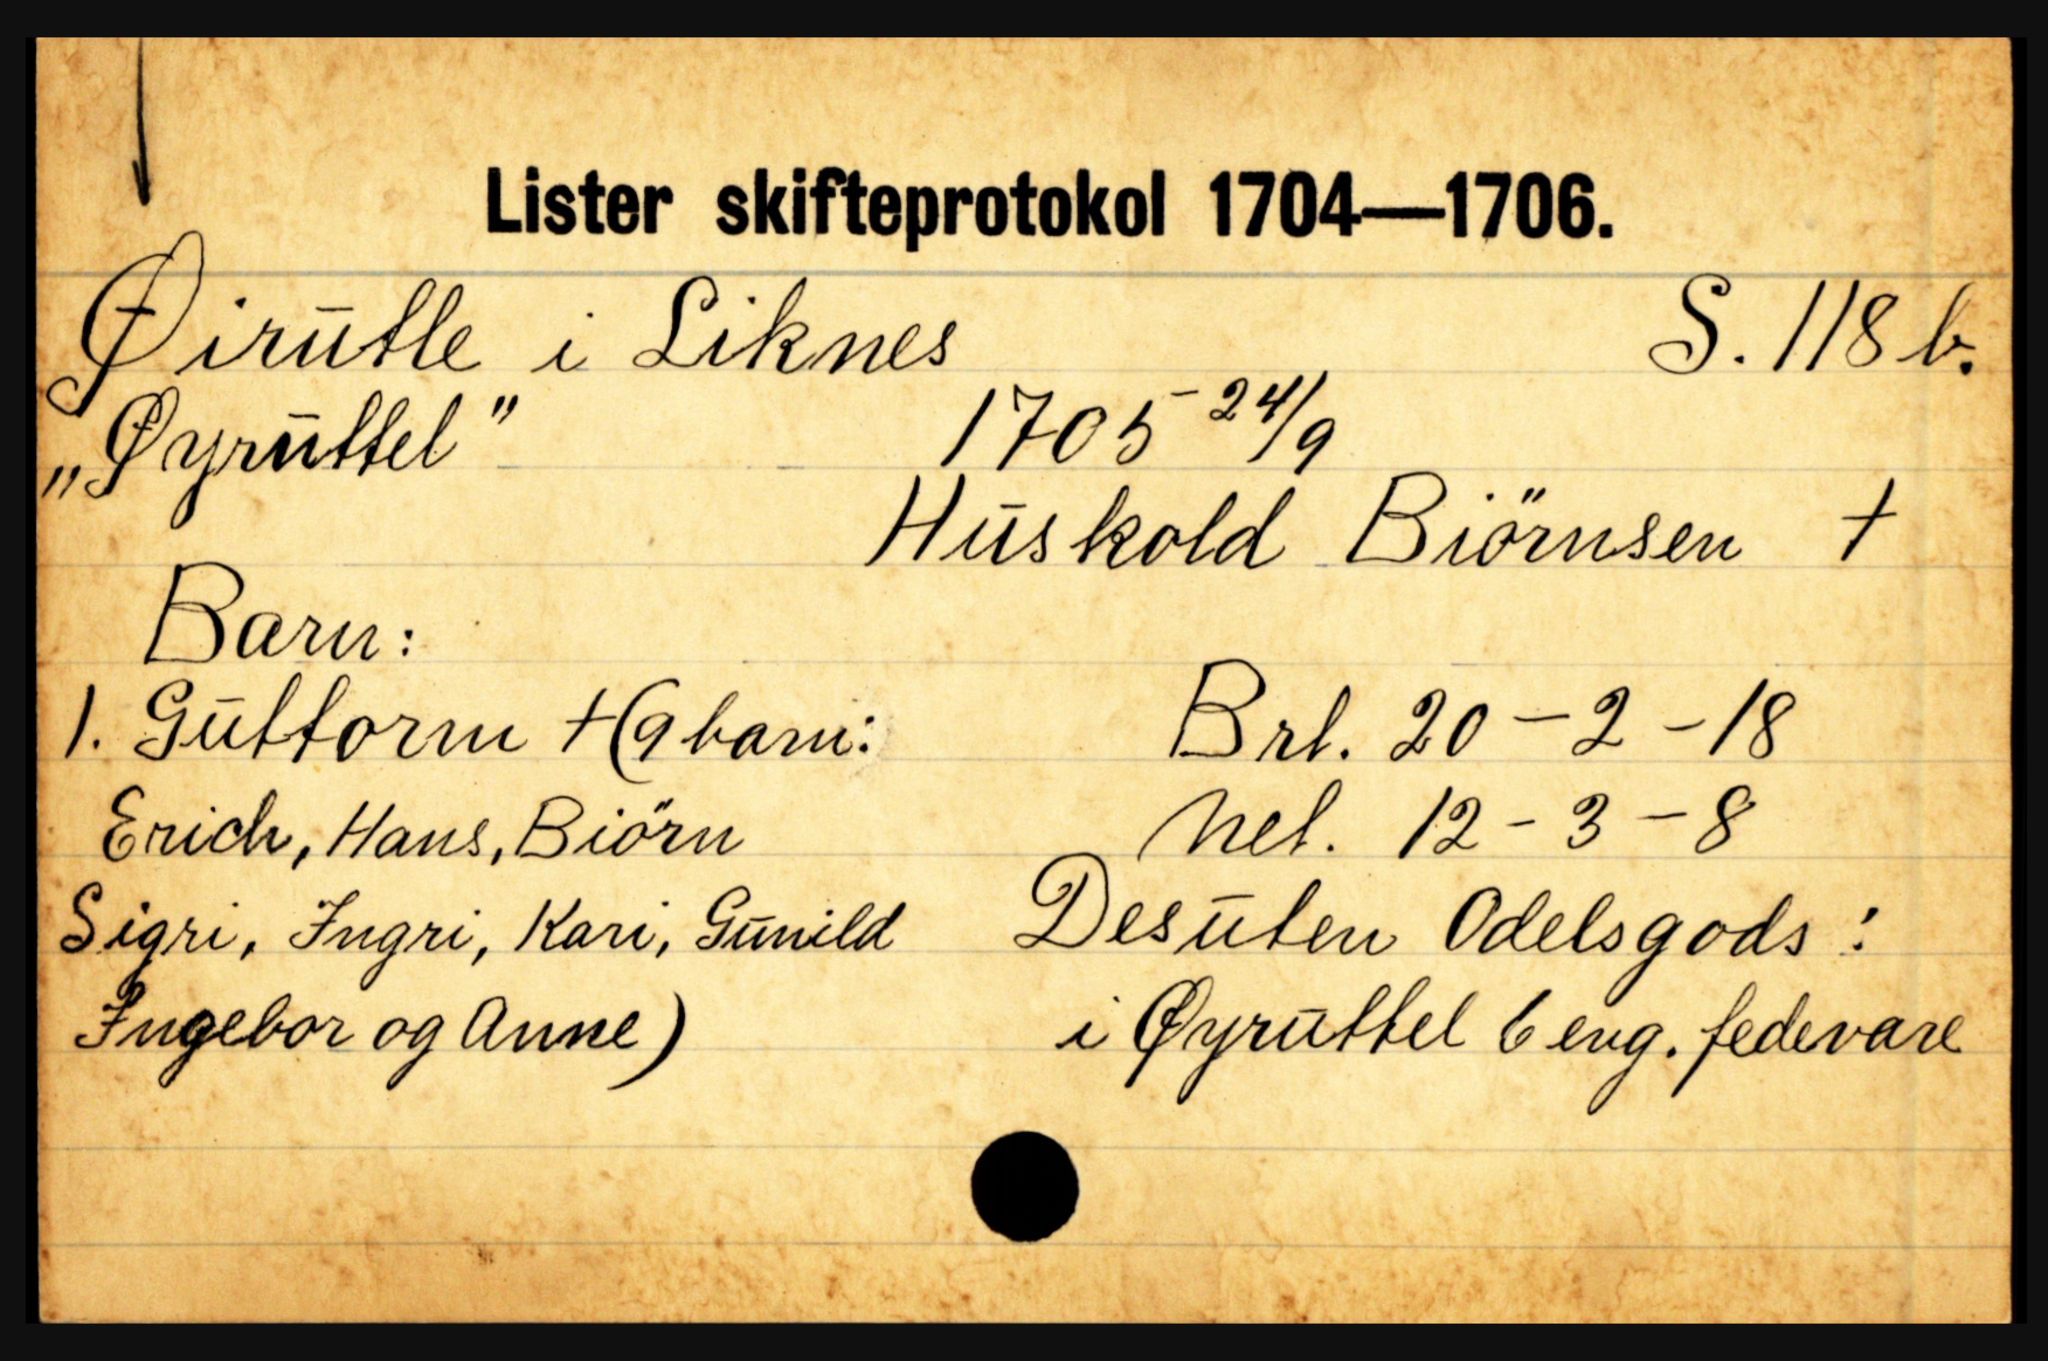 Lister skifteprotokol 1704—1706.
Øirūtle i Liknes S. 118 b.
„Øyrūttel” 1705 - 24/9
Hūskold Biörnsen †
Barn:
1. Gūttorm † (9 barn: Brt. 20 - 2 - 18
Erich, Hans, Biörn Net. 12 - 3 - 8
Sigri, Ingri, Kari, Gūnild Desūten Odelsgods:
Ingebor og Anne) i Øyrūttel 6 eng. fedevare